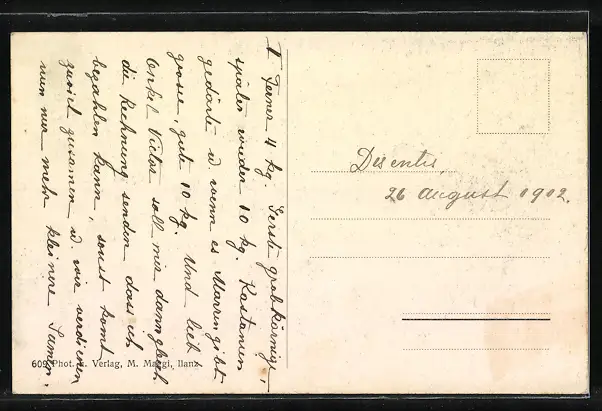 I Ferner 4 kg. Gerste grobkörnige,
später wieder 10 kg. Kastanien
gedörte u. wenn es Marrin gibt
grosse, gute 10 kg. Und lieb
Onkel Victor soll mir dann gleich
die Rechnung senden dass ich
bezahlen kann, sonst komt
zuviel zusamen u. wir verdienen
nun nur mehr kleinere Sumen.
Disentis,
26 august 1912.
609 Phot. u. Verlag, M. Maggi, Ilanz.